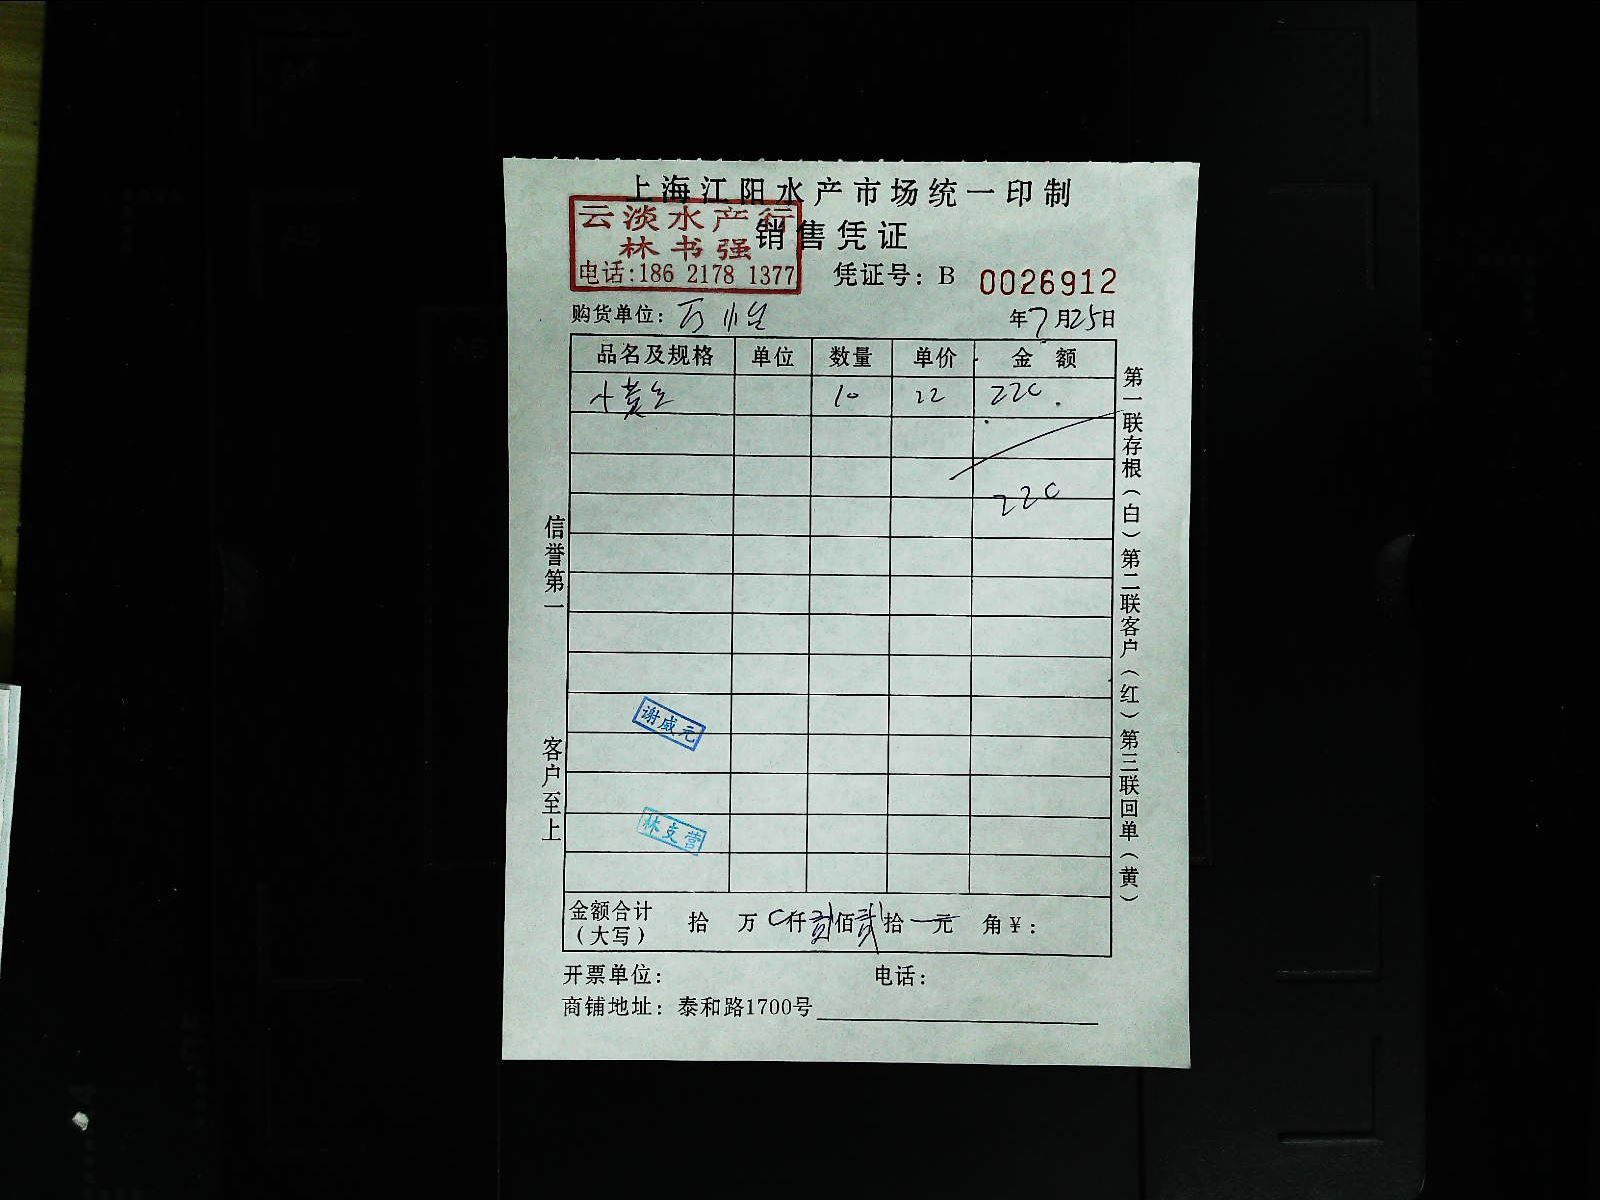 上海江阳水产市场统一印制
销售凭证
云淡水产行
林书强
电话:186 2178 1377
凭证号: B 0026912
购货单位:
年7月25日
品名及规格 单位 数量 单价 金额
小黄 10 22 220
220
信誉第一
客户至上
第一联存根(白)第二联客户(红)第三联回单(黄)
谢威元
林支营
金额合计(大写) 拾 万 0仟贰佰贰拾 元 角¥:
开票单位: 电话:
商铺地址: 泰和路1700号